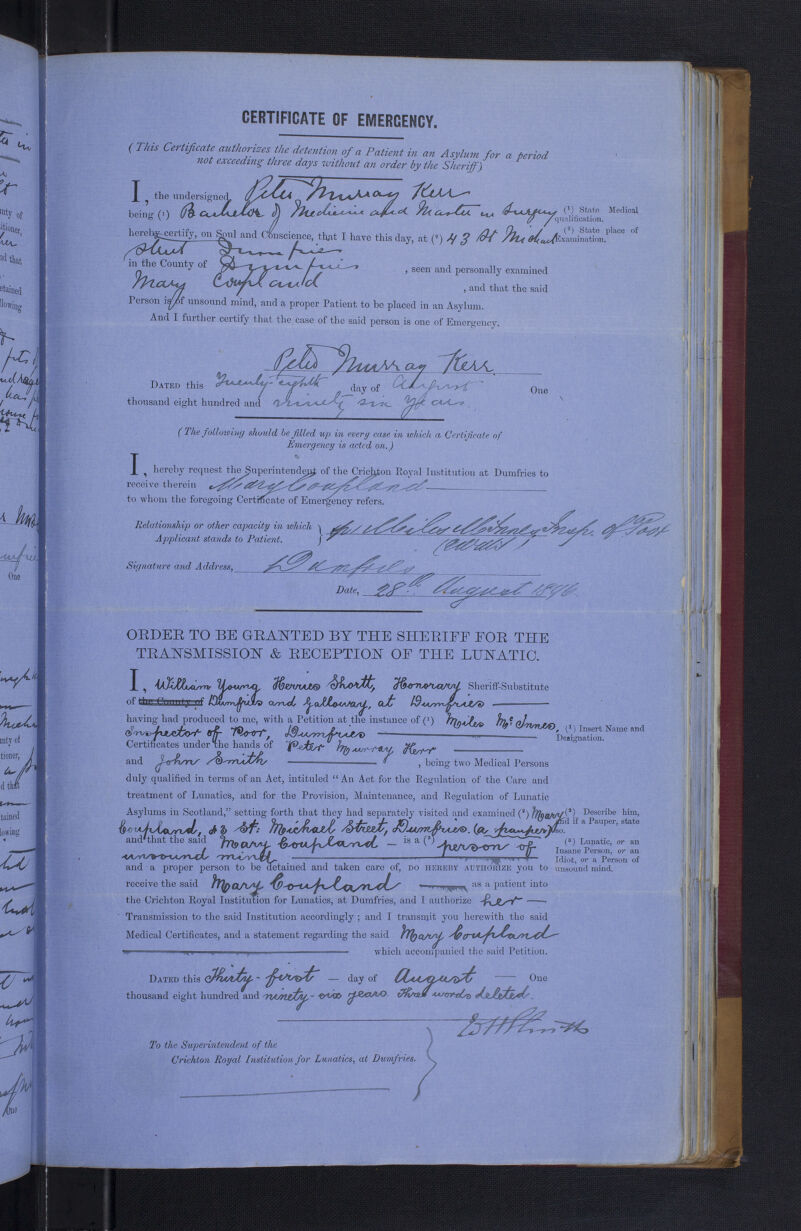 CERTIFICATE OF EMERGENCY.
(This Certificate authorizes the detention of a Patient in an Asylum for a period
not exceeding three days without an order by the Sheriff)
I, the undersigned Peter Murray Kerr
being (¹) Bachelor of Medicine and Master in Surgery (¹) State Medical
qualification.
hereby certify, on Soul and Conscience, that I have this day, at (²) 43 St Michael (²) State place of
Examination.
Street Dumfries
in the County of Dumfries, seen and personally examined
Mary Coupland, and that the said
Person is of unsound mind, and a proper Patient to be placed in an Asylum.
And I further certify that the case of the said person is one of Emergency.
Peter Murray Kerr.
DATED this Twenty-eighth day of August One
thousand eight hundred and ninety six years
(The following should be filled up in every case in which a Certificate of
Emergency is acted on.)
I, hereby request the Superintendent of the Crichton Royal Institution at Dumfries to
receive therein Mary Coupland
to whom the foregoing Certificate of Emergency refers.
Relationship or other capacity in which
Applicant stands to Patient.
Miles McInnes, Insp. of Poor
Signature and Address, Dumfries
Date, 28th August 1896.
ORDER TO BE GRANTED BY THE SHERIFF FOR THE
TRANSMISSION & RECEPTION OF THE LUNATIC.
I, William Young Herries Shortt, Honorary Sheriff-Substitute
of the County of Dumfries and Galloway, at Dumfries
having had produced to me, with a Petition at the instance of (¹) Miles McInnes, (¹) Insert Name and
Designation.
Inspector of Poor, Dumfries
Certificates under the hands of Peter Murray Kerr
and John Smith, being two Medical Persons
duly qualified in terms of an Act, intituled "An Act for the Regulation of the Care and
treatment of Lunatics, and for the Provision, Maintenance, and Regulation of Lunatic
Asylums in Scotland," setting forth that they had separately visited and examined (²) Mary (²) Describe him,
and if a Pauper, state
so.
Coupland, 43 St: Michael Street, Dumfries. (a pauper)
and that the said Mary Coupland is a (³) person of (³) Lunatic, or an
Insane Person, or an
Idiot, or a Person of
unsound mind.
unsound mind
and a proper person to be detained and taken care of, DO HEREBY AUTHORIZE you to
receive the said Mary Coupland as a patient into
the Crichton Royal Institution for Lunatics, at Dumfries, and I authorize her
Transmission to the said Institution accordingly; and I transmit you herewith the said
Medical Certificates, and a statement regarding the said Mary Coupland
which accompanied the said Petition.
DATED this Thirty-first day of August One
thousand eight hundred and ninety-six years Three words deleted.
To the Superintendent of the
Crichton Royal Institution for Lunatics, at Dumfries.